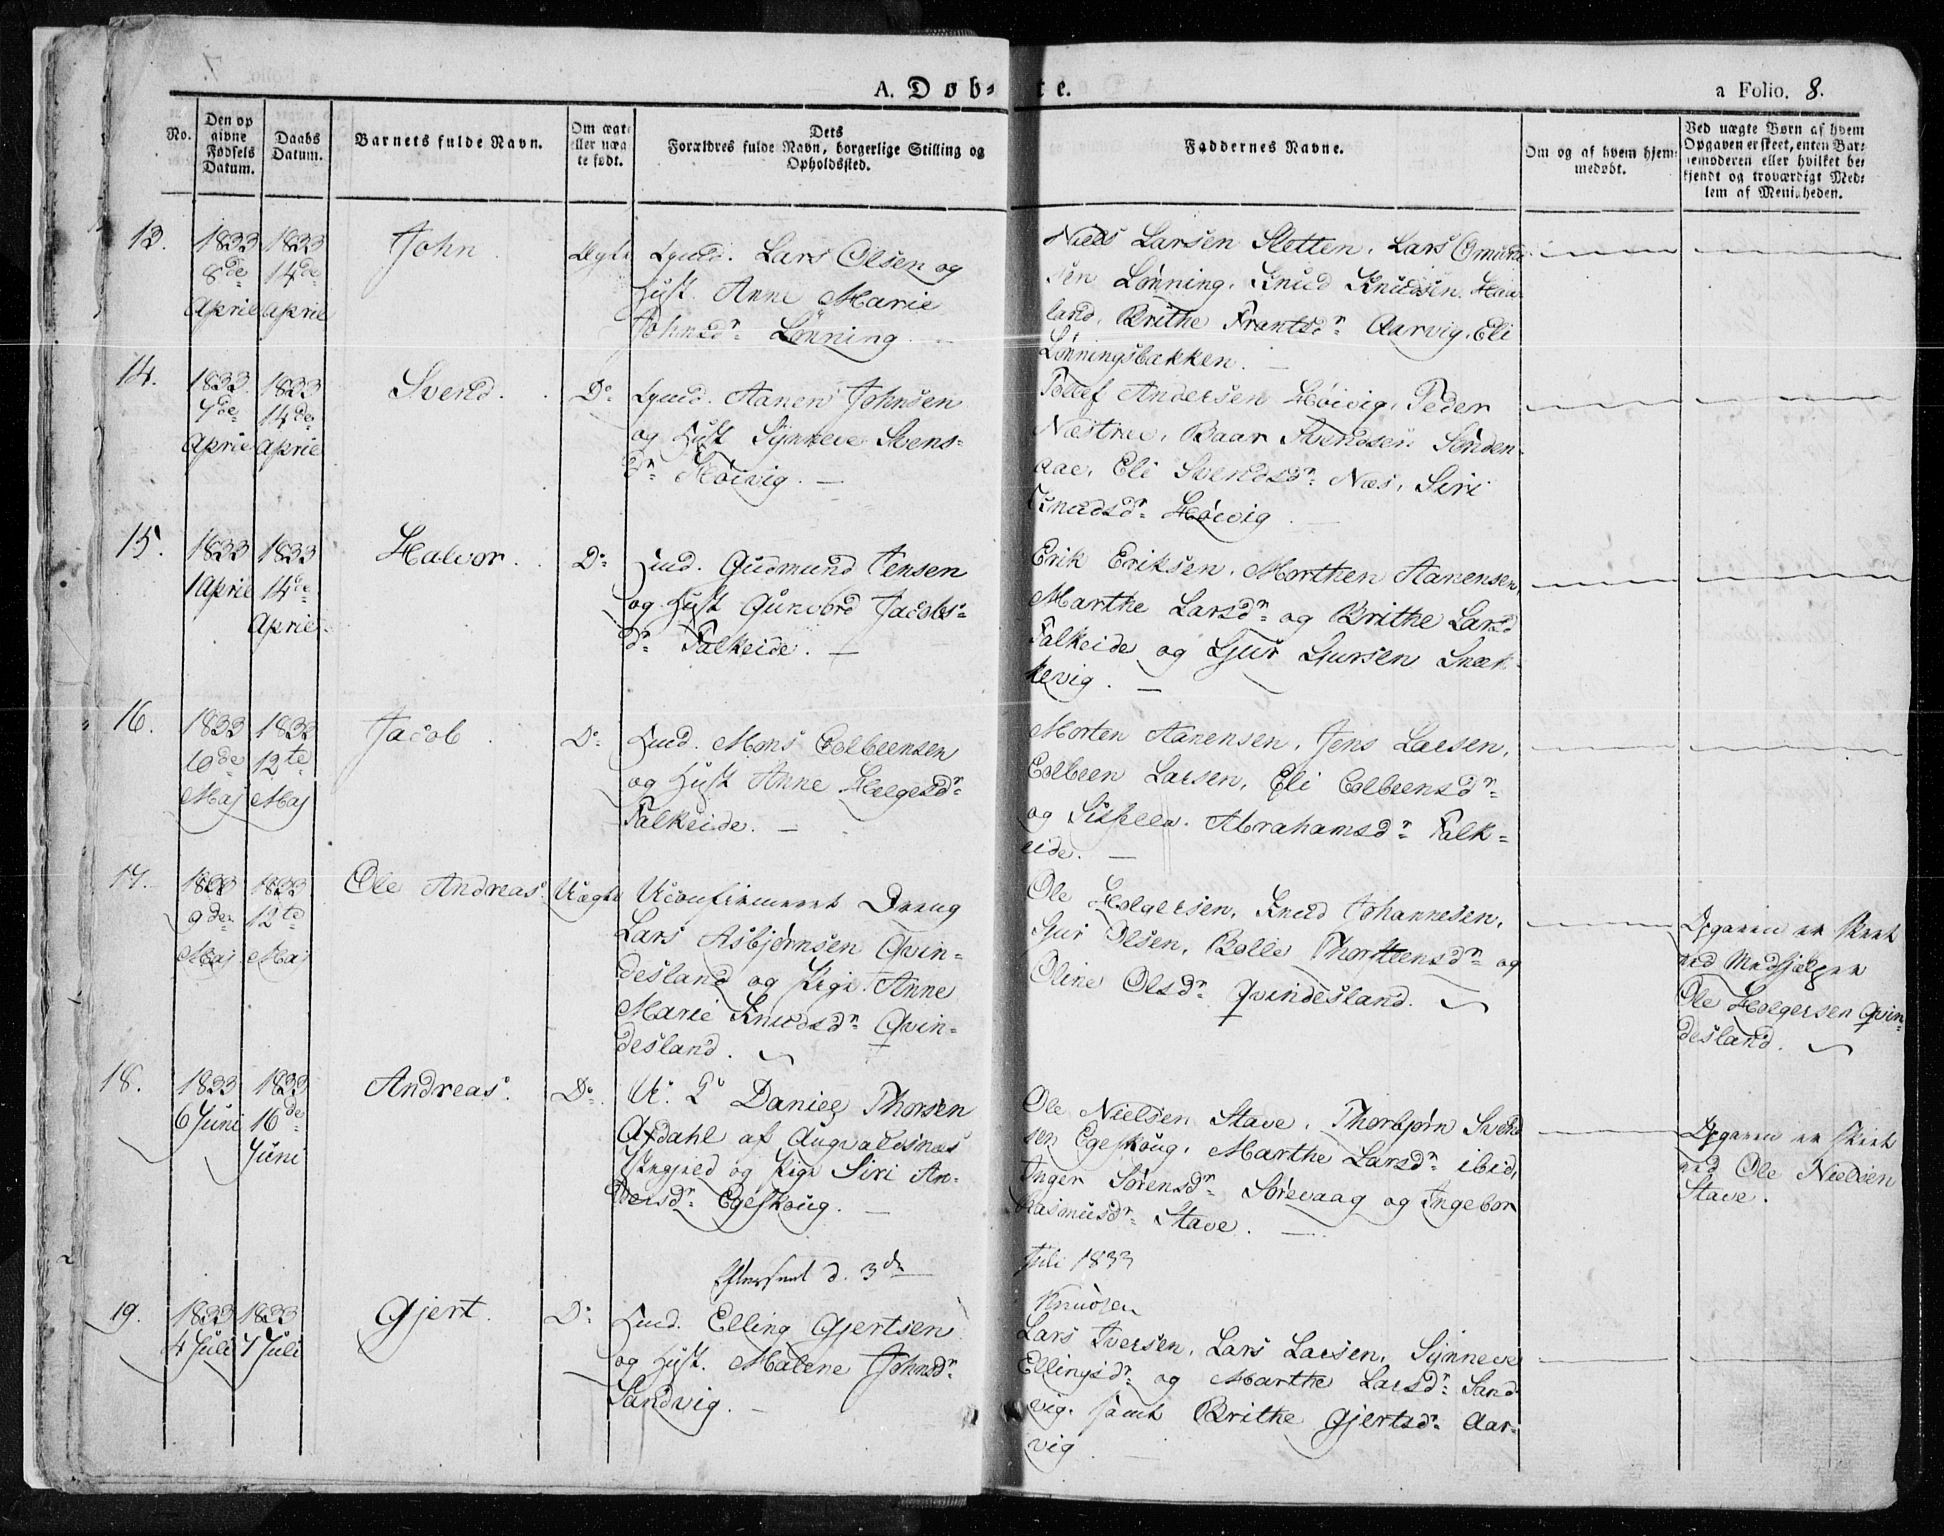 A. Døbte.
a Folio. 8.
No.
Den opgivne Fødsels Datum.
Daabs Datum.
Barnets fulde Navn.
Om ægte eller uægte født.
Dets Forældres fulde Navn, borgerlige Stilling og Opholdssted.
Faddernes Navne.
Om og af hvem hjemmedøbt.
Ved uægte Børn af hvem
Opgaven er skeet, enten Bar-
nemoderen eller hvilket be-
kjendt og troværdigt Med-
lem af Menigheden.
13.
1833
8de
April
1833
14de
April
John
Ægte
Lars Olsen og
Hust. Anne Marie
Johnsdr. Lønning.
Niels Larsen Sletten, Lars Omund
sen Lønning, Knud Knudsen Haa-
land, Brithe Frantsdr. Aarvig, Eli
Lønningsbakken.
14.
1833
7de
April
1833
14de
April
Svend.
Do
Aanen Johnsen
og Hust Synneve Svens-
dr. Høivig.
Tollef Andersen Høivig, Peder
Næstrec, Baar Svendsen Sønden-
aae, Eli Svendsdr. Næs, Siri
Knudsdr. Høivig
15.
1833
1 April
1833
14de
April.
Halvor.
Do
Lmd. Gudmund Jensen
og Hust Gunvord Jacobs-
dr. Falkeide.
Erik Eriksen, Morthen Aanensen,
Marthe Larsdr. og Brithe Larsd
Falkeide og Sjur Sjursen Snæk-
kevig.
16.
1833
10de
Maj
1833
12te
Maj
Jacob
Do
Lmd. Mons Colbeensen
og Hust Anne Helgesdr.
Falkeide.
Morten Aanensen, Jens Larsen,
Colbeen Larsen, Eli Colbeensdr.
og Sishela Abrahamsdr. Falk-
eide.
17.
1833
9de
Maj
1833
12te
Maj
Ole Andreas.
Uægte
Uconfirmeret Dreng
Lars Asbjørnsen Qvin-
desland og Pige Anne
Marie Knudsdr. Qvin-
desland.
Ole Holgersen, Knud Johannesen,
Sjur Olsen, Bolle Thorsteensdr. og
Oline Olsdr. Qvindesland.
Opgaven er skeet
ved Medhjælper
Ole Holgersen Qvin-
desland.
18.
1833
6 Juni
1833
16de
Juni
Andreas.
Do.
Daniel Thorsen
Axdahl af Augvaldsnæs
Præstegjeld og Pige Siri An-
dersdr. Egeskoug.
Ole Nielsen Stave, Thorbjørn Svend
sen Egeskoug, Marthe Larsdr. ibid,
Inger Sørensdr. Sørevaag og Ingebor
Rasmusdr. Stave.
Opgaven er skeet
ved Ole Nielsen
Stave.
Efterseet d. 3de
Juli 1833
Knudsen
19.
1833
4 Juli
1833
7 Juli
Gjert.
Do
Lmd. Elling Gjertsen
og Hust. Malene Johnsdr.
Sandvig.
Lars Iversen, Lars Larsen, Synneve
Ellingsdr. og Marthe Larsdr. Sand
vig, samt Brithe Gjertsdr. Aar-
vig